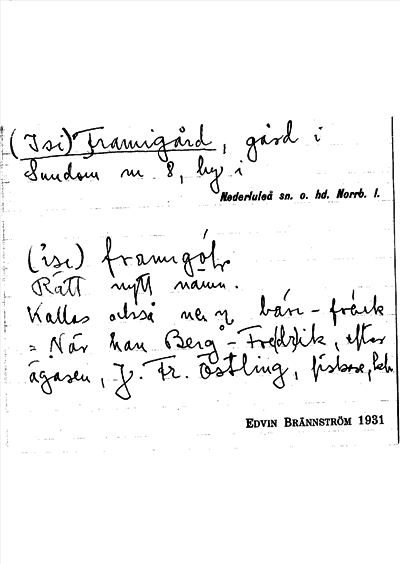 (Isi) Framigård, gård i
Sundom nr. 8, by i
Nederluleå sn. o. hd. Norrb. l.
(ìsi) framigó̱ɭ
Rätt nytt namn.
Kallas också
= När han Berg-Fre(d)rik, efter
ägaren, J. Fr. Östling, fiskare,
EDVIN BRÄNNSTRÖM 1931